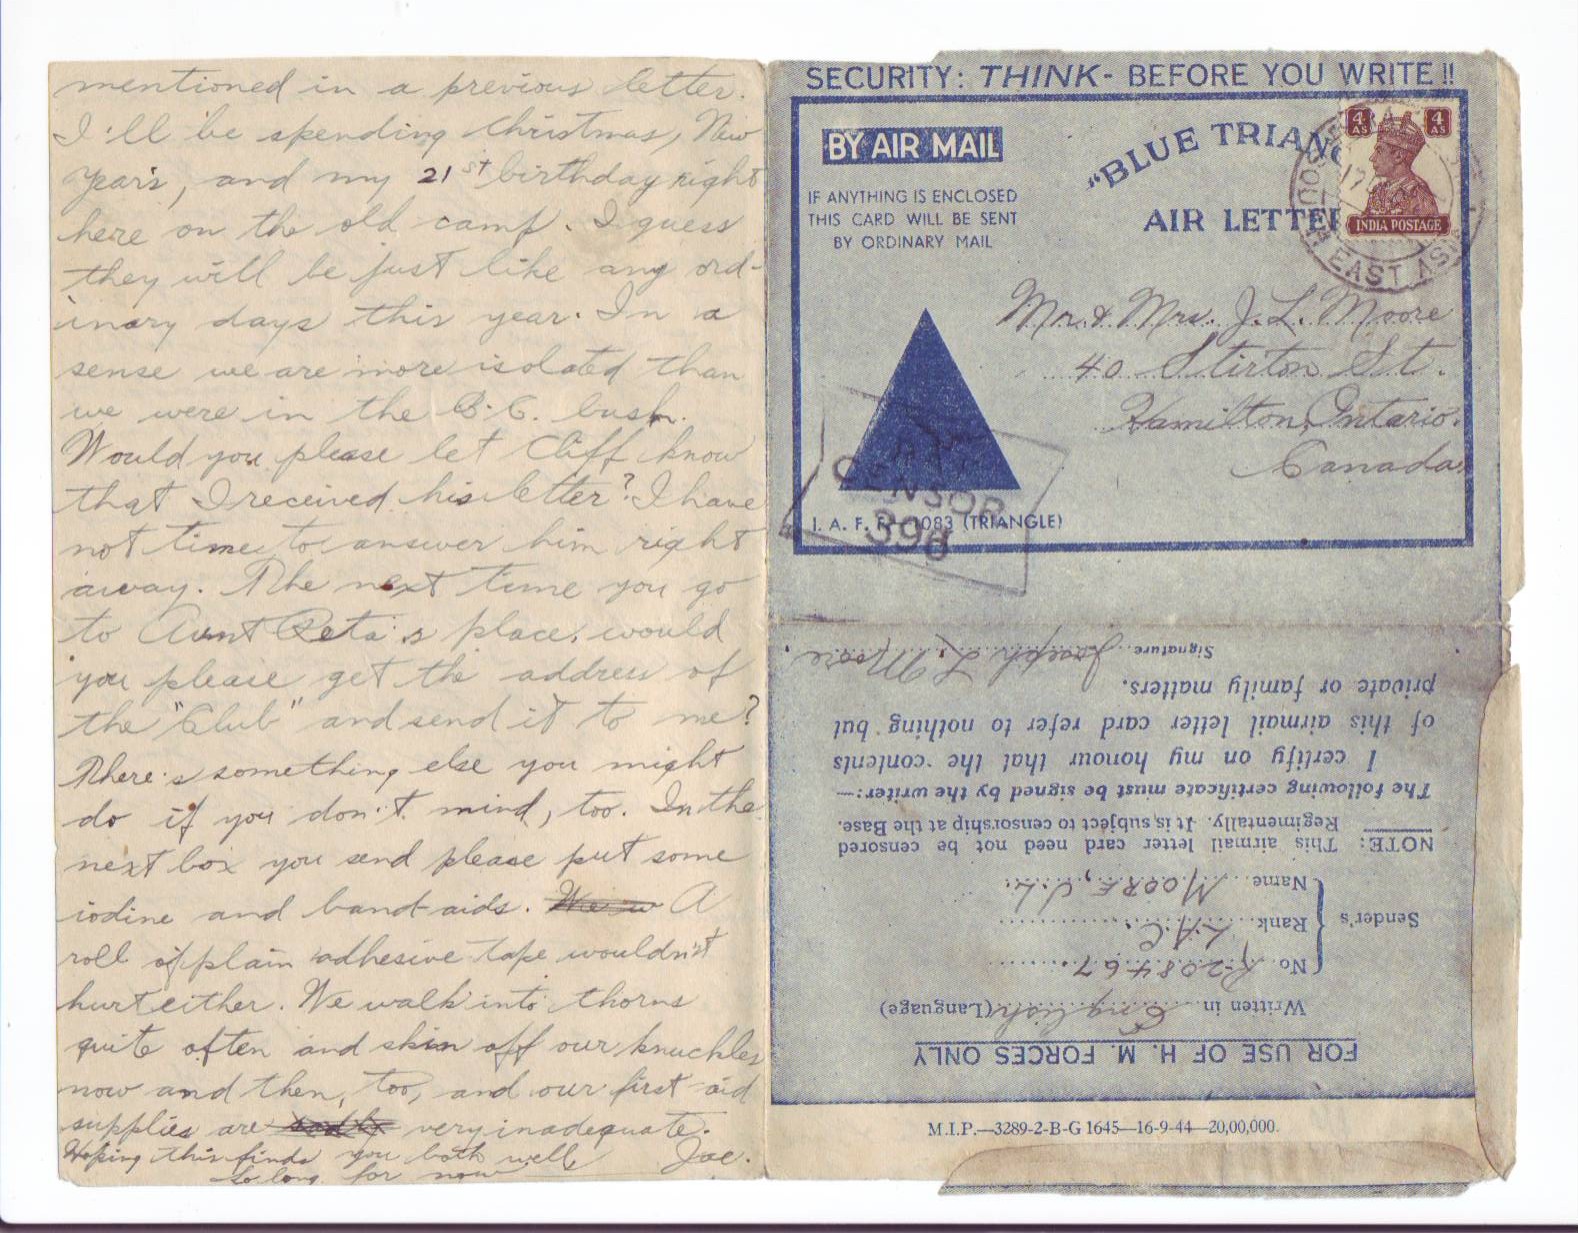 mentioned in a previous letter.
I'll be spending Christmas, New
Year's, and my 21st birthday right
here on the old camp. I guess
they will be just like any ord-
inary days this year. In a
sense we are more isolated than
we were in the B.C. bush.
Would you please let Cliff know
that I received his letter? I have
not time to answer him right
away. The next time you go
to Aunt Reta's place, would
you please get the address of
the "Club" and send it to me?
There's something else you might
do if you don't mind, too. In the
next box you send please put some
iodine and band-aids. We w A
roll of plain adhesive tape wouldn't
hurt either. We walk into thorns
quite often and skin off our knuckles
now and then, too, and our first aid
supplies are sadly very inadequate.
Hoping this finds you both well, Joe.
So long for now
SECURITY: THINK- BEFORE YOU WRITE!!
BY AIR MAIL
IF ANYTHING IS ENCLOSED
THIS CARD WILL BE SENT
BY ORDINARY MAIL
"BLUE TRIANG
AIR LETTER
4 AS 4 AS
INDIA POSTAGE
EAST AS
Mr. & Mrs. J. L. Moore
40 Stirton St.
Hamilton, Ontario.
Canada.
CENSOR
I. A. F. F. 1083 (TRIANGLE)
FOR USE OF H. M. FORCES ONLY
Written in English (Language)
Sender's
No. R-208467
Rank L.A.C.
Name MOORE, J.L.
NOTE: This airmail letter card need not be censored
Regimentally. It is subject to censorship at the Base.
The following certificate must be signed by the writer:—
I certify on my honour that the contents
of this airmail letter card refer to nothing but
private or family matters.
Signature Joseph L. Moore
M.I.P.—3289-2-B-G 1645—16-9-44—20,00,000.